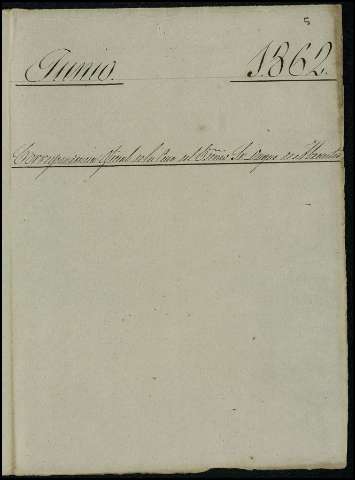 5
Junio. 1862.
Correspondencia oficial de la Casa del Excmo Sr. Duque de